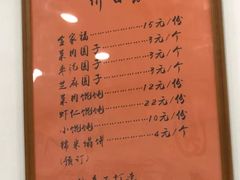 全家福 15元/份
菜肉团子 3元/个
枣泥团子 3元/个
芝麻团子 3元/个
菜肉馄饨 12元/份
虾仁馄饨 22元/份
小馄饨 10元/份
糯米烧饼 4元/个
(预订)